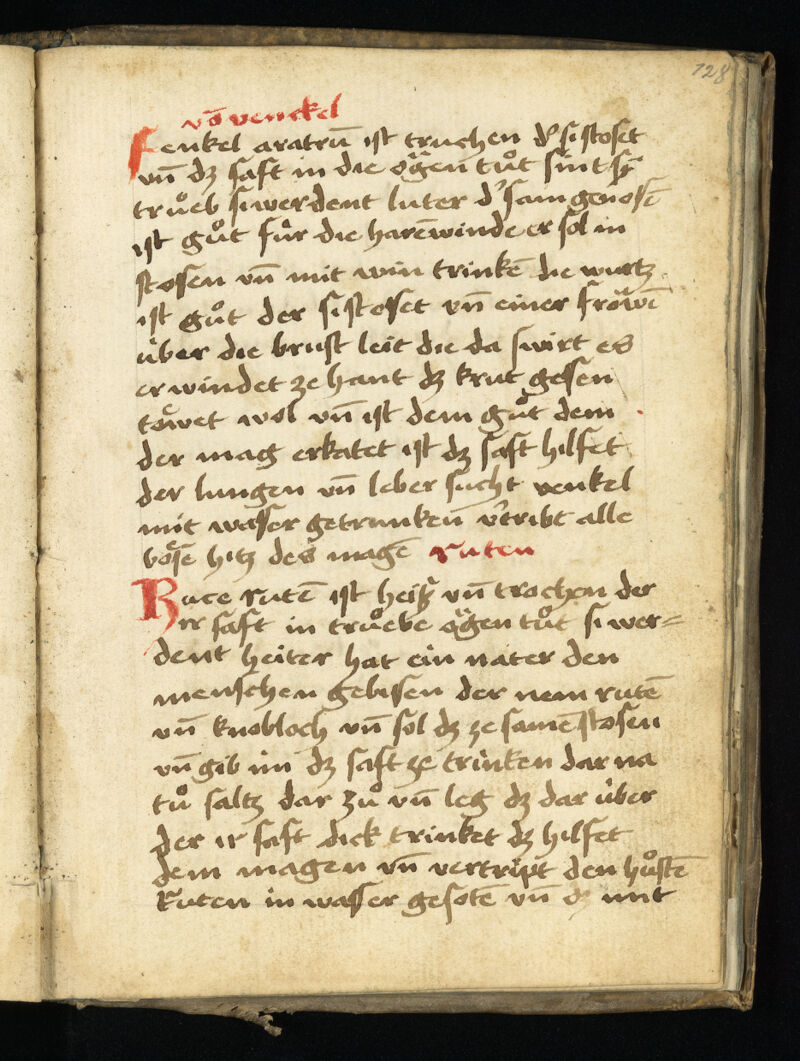 128
vō venckel
Fenkel aratrū ist truchen dˢ si stoset
vn̄ dʒ saft in die oͧgen tuͦt sint sÿ
truͦeb si werdent luter dˢ sam genosē
ist guͦt fuͤr die harēwinde er sol in
stosen vn̄ mit win trinkē die wurtz
ist guͦt der si stoset vn̄ einer froͧwē
uͤber die brust leit die da swirt es
er windet ze hant dʒ krut gesen
toͤwet wol vn̄ ist dem guͦt dem
der mag erkatet ist dʒ saft hilfet
der lungen vn̄ leber sucht venkel
mit wasser getrunken vˢtribt alle
boͤse hitz des magē ruten
Rute rutē ist heiß vn̄ trochen der
ir saft in truͦebe oͧgen tuͦt si wer=
dent heiter hat ein nater den
menschen gebissen der nem rutē
vn̄ knobloch vn̄ sol dʒ ze samē stosen
vn̄ gib im dʒ saft ze trinken dar na
tuͦ saltz dar zuͦ vn̄ leg dʒ dar uͤber
der ir saft dick trinket dʒ hilfet
dem magen vn̄ vertript den huͦstē
Ruten in wasser gesotē vn̄ dʒ mit